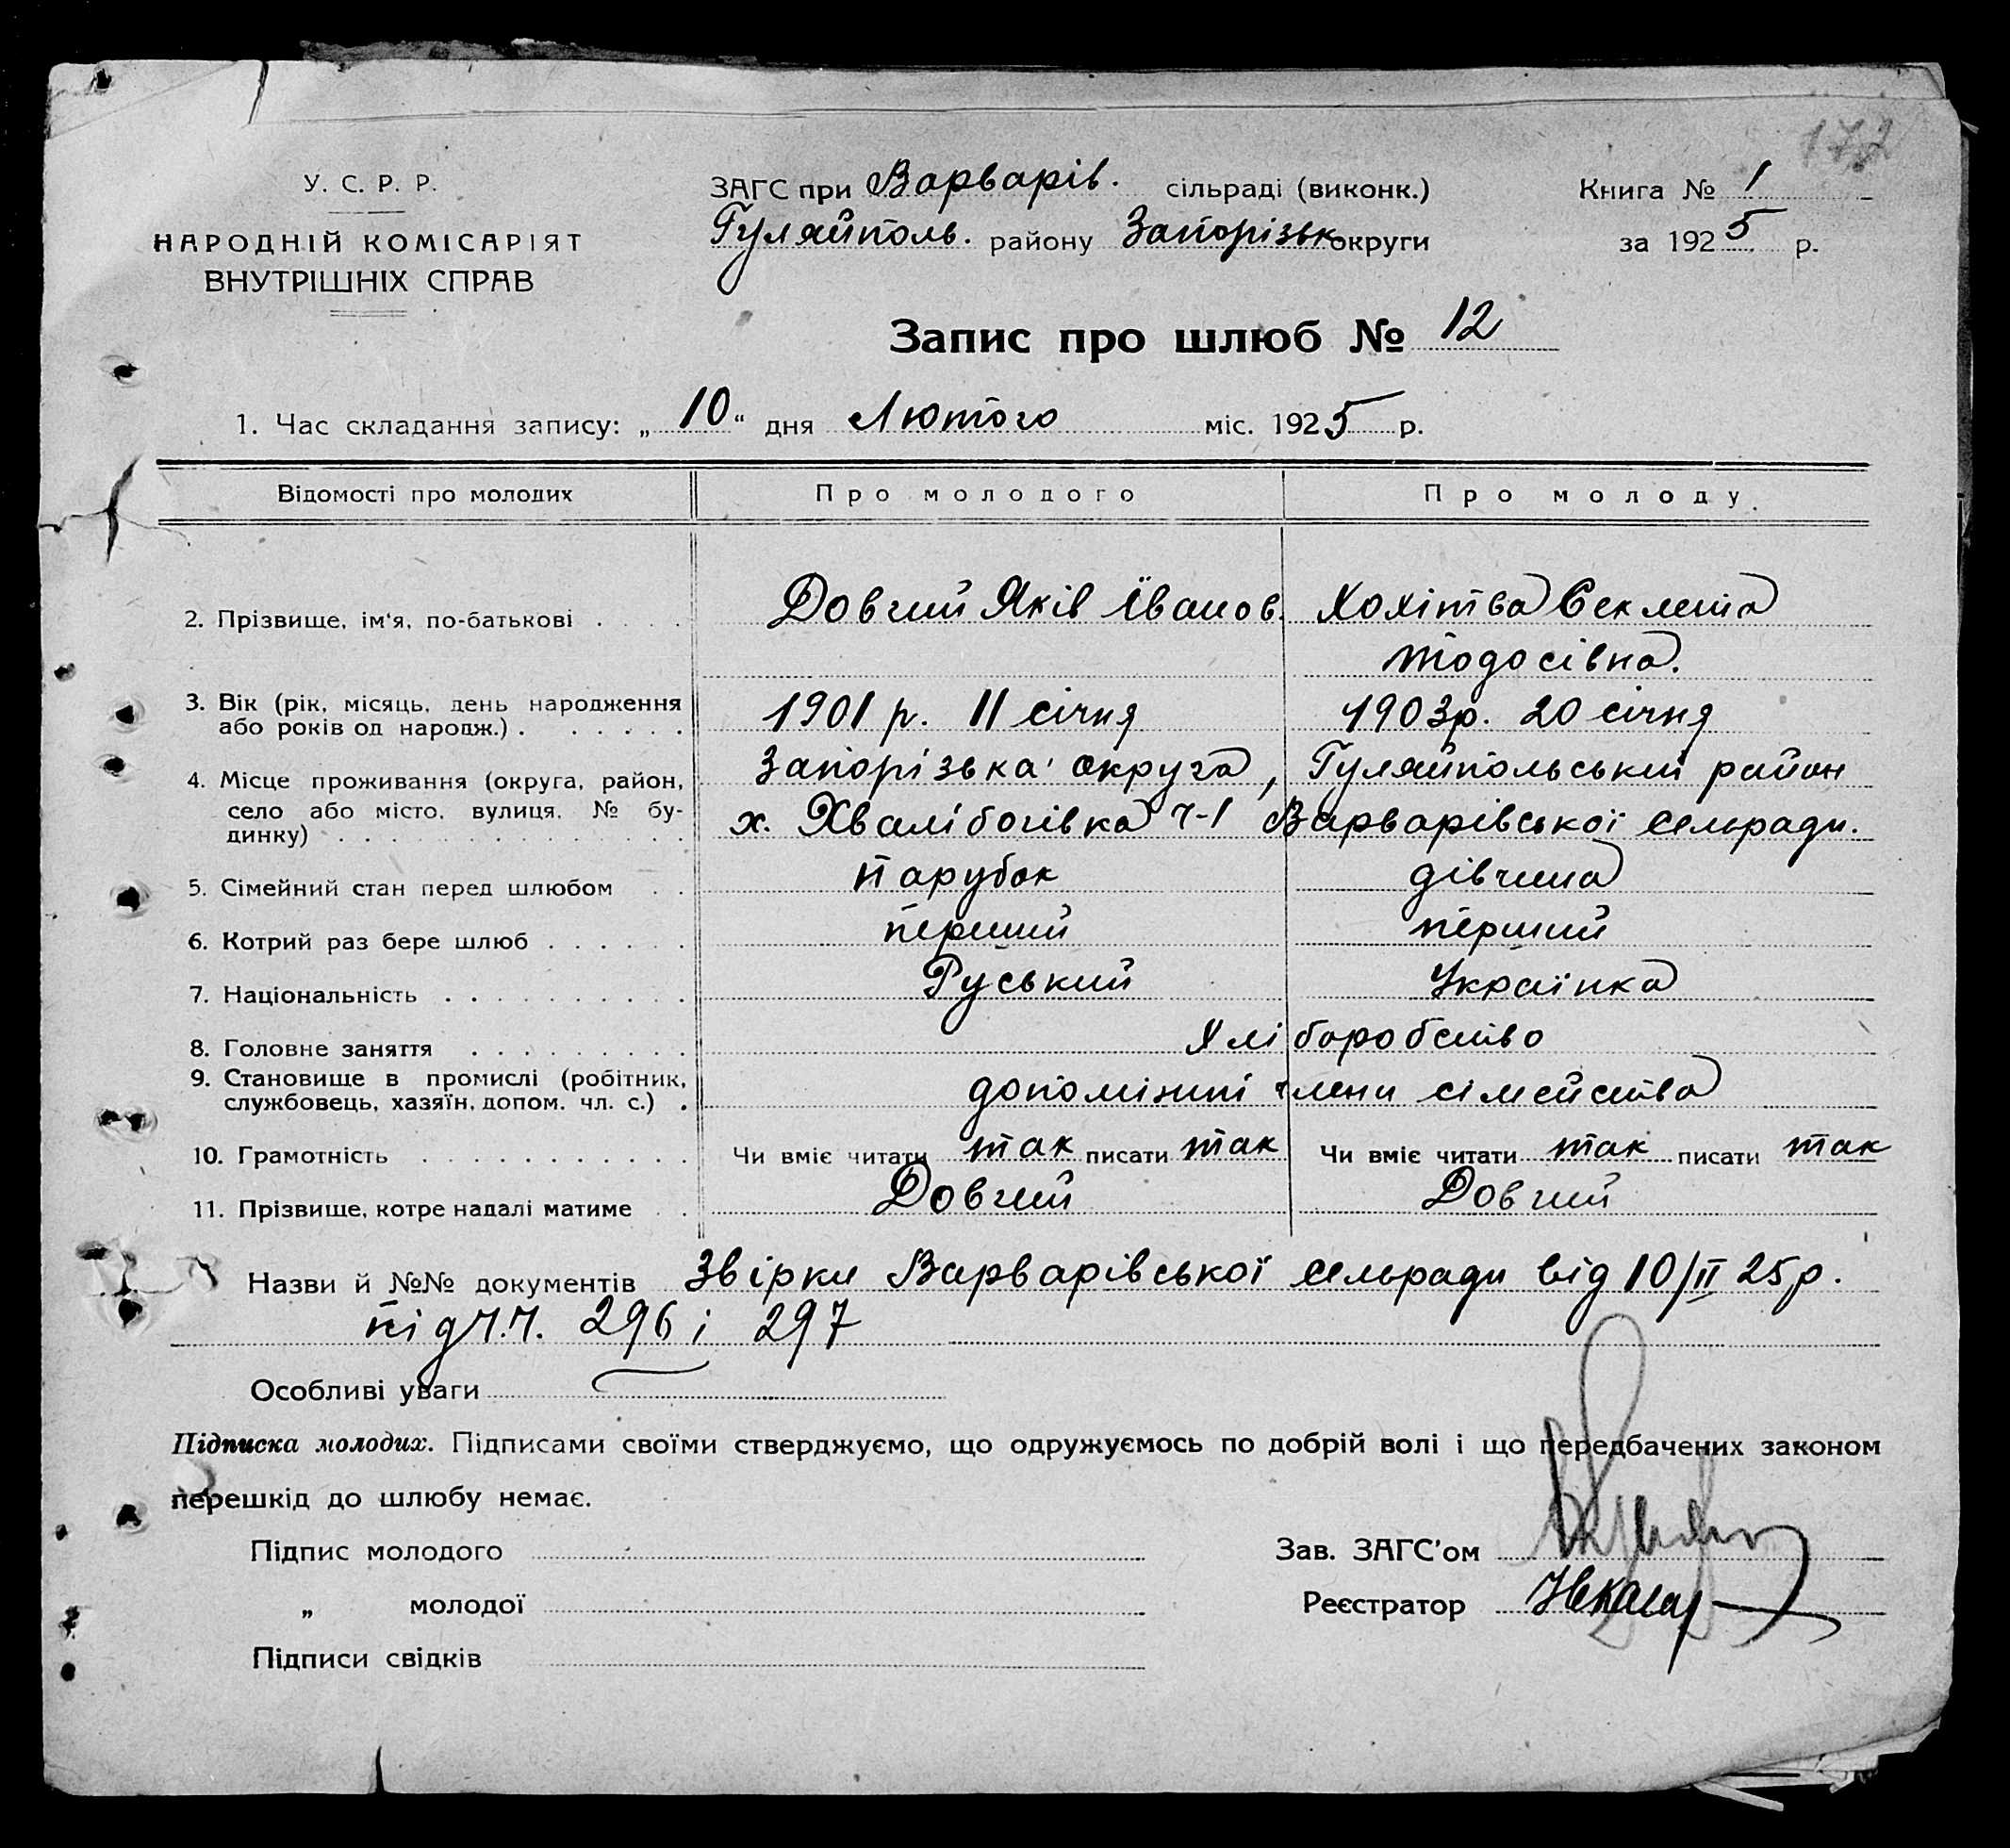 172
У. С. Р. Р.
НАРОДНІЙ КОМІСАРІЯТ
ВНУТРІШНІХ СПРАВ
ЗАГС при Варварів. сільраді (виконк.)
Гуляйполь. району Запорізьк округи
Книга № 1
за 1925 р.
Запис про шлюб № 12
1. Час складання запису: „10“ дня Лютого міс. 1925 р.
Відомості про молодих Про молодого Про молоду
2. Прізвище, ім'я, по-батькові . . . . Довгий Яків Іванов. Хохітва Секлета
Тодосівна.
3. Вік (рік, місяць, день народження
або років од народж.) . . . . . . 1901 р. 11 січня 1903 р. 20 січня
4. Місце проживання (округа, район, Запорізька округа, Гуляйпольський район
село або місто, вулиця, № бу- х. Хвалібогівка ч-1 Варварівської сельради.
динку) . . . . . . . . . . . . .
5. Сімейний стан перед шлюбом . . парубок дівчина
6. Котрий раз бере шлюб . . . . . . перший перший
7. Національність . . . . . . . . . . Руський Українка
8. Головне заняття . . . . . . . . . Хліборобство
9. Становище в промислі (робітник,
службовець, хазяїн, допом. чл. с.) . допоміжні члени сімейства
10. Грамотність . . . . . . . . . . . Чи вміє читати так писати так Чи вміє читати так писати так
11. Прізвище, котре надалі матиме . . Довгий Довгий
Назви й №№ документів Звірки Варварівської сельради від 10/II 25 р.
під ч.ч. 296 і 297
Особливі уваги
Підписка молодих. Підписами своїми стверджуємо, що одружуємось по добрій волі і що передбачених законом
перешкід до шлюбу немає.
Підпис молодого
Зав. ЗАГС'ом
„ молодої
Реєстратор
Підписи свідків